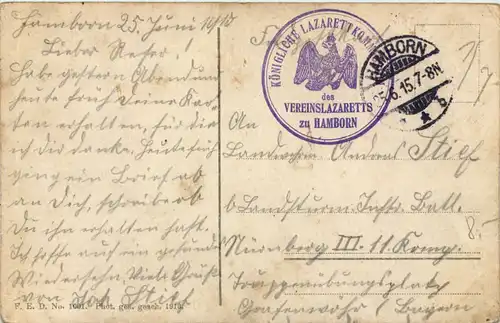 Hamborn 25. Juni 1915
Lieber Peter!
Habe gestern Abend und
heute früh Deine Kar-
ten erhalten, für die
ich Dir danke. Heute früh
ging ein Brief ab
an Dich, schreibe ob
Du ihn erhalten hast.
Ich hoffe auf ein gesundes
Wiedersehn. Viele Grüße
von
F. E. D. No. 1091. Phot. ges. gesch. 1915.
KÖNIGLICHE LAZARETTKOM
des
VEREINSLAZARETTS
zu HAMBORN
HAMBORN
25.6.15.7-8N
* b
An
Landsturm Stief
Landsturm Inftr. Batl.
Nürnberg III. 11. Komp.
Truppenübungsplatz
Grafenwöhr / Bayern